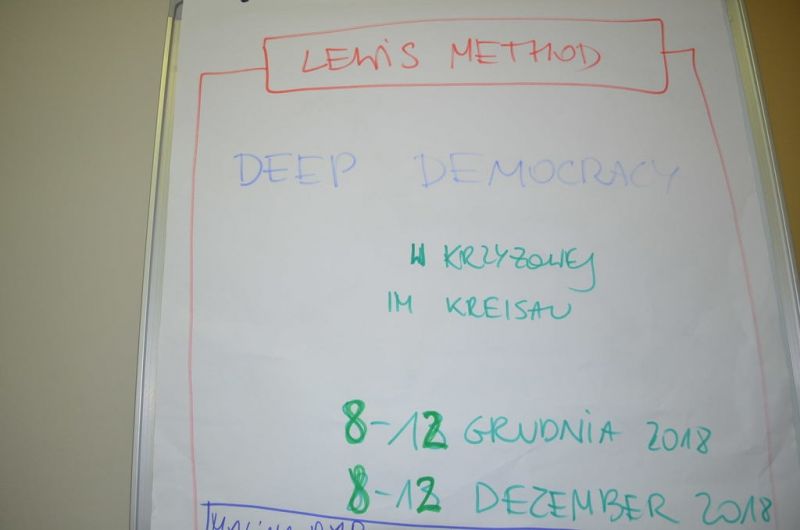 LEWIS METHOD
DEEP DEMOCRACY
W KRZYZOWEJ
IM KREISAU
8-12 GRUDNIA 2018
8-12 DEZEMBER 2018